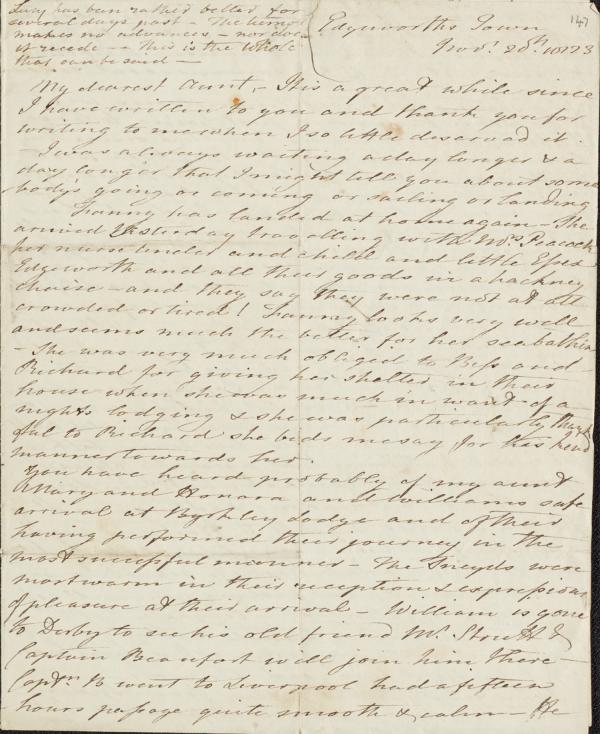 Lucy has been rather better for
several days past – The hernia
makes no advances – nor does
it recede – This is the whole
that can be said –
Edgeworths Town
Novr. 20th. 1823
147
My dearest Aunt, – It is a great while since
I have written to you and thank you for
writing to me when I so little deserved it
– I was always waiting a day longer & a
day longer that I might tell you about some
bodys going or coming or sailing or landing
Fanny has landed at home again. She
arrived yesterday travelling with Mrs. Peacock
her nurse and child and little
Edgeworth and all their goods in a hackney
chaise – and they say they were not at all
crowded or tired! Fanny looks very well
and seems much the better for her sea bathing
– She was very much obliged to Bess and
Richard for giving her shelter in their
house when she was much in want of a
nights lodging & she was particularly thank
ful to Richard she bids me say for his kind
manner towards her.
You have heard probably of my aunt
Mary and Honora and Williams safe
arrival at Byrkley Lodge and of their
having performed their journey in the
most successful manner – The Sneyds were
most warm in their reception & expressions
of pleasure at their arrival – William is gone
to Derby to see his old friend Mr. Strutt &
Captain Beaufort will join him there –
Captn. B went to Liverpool had a fifteen
hours passage quite smooth & calm – He